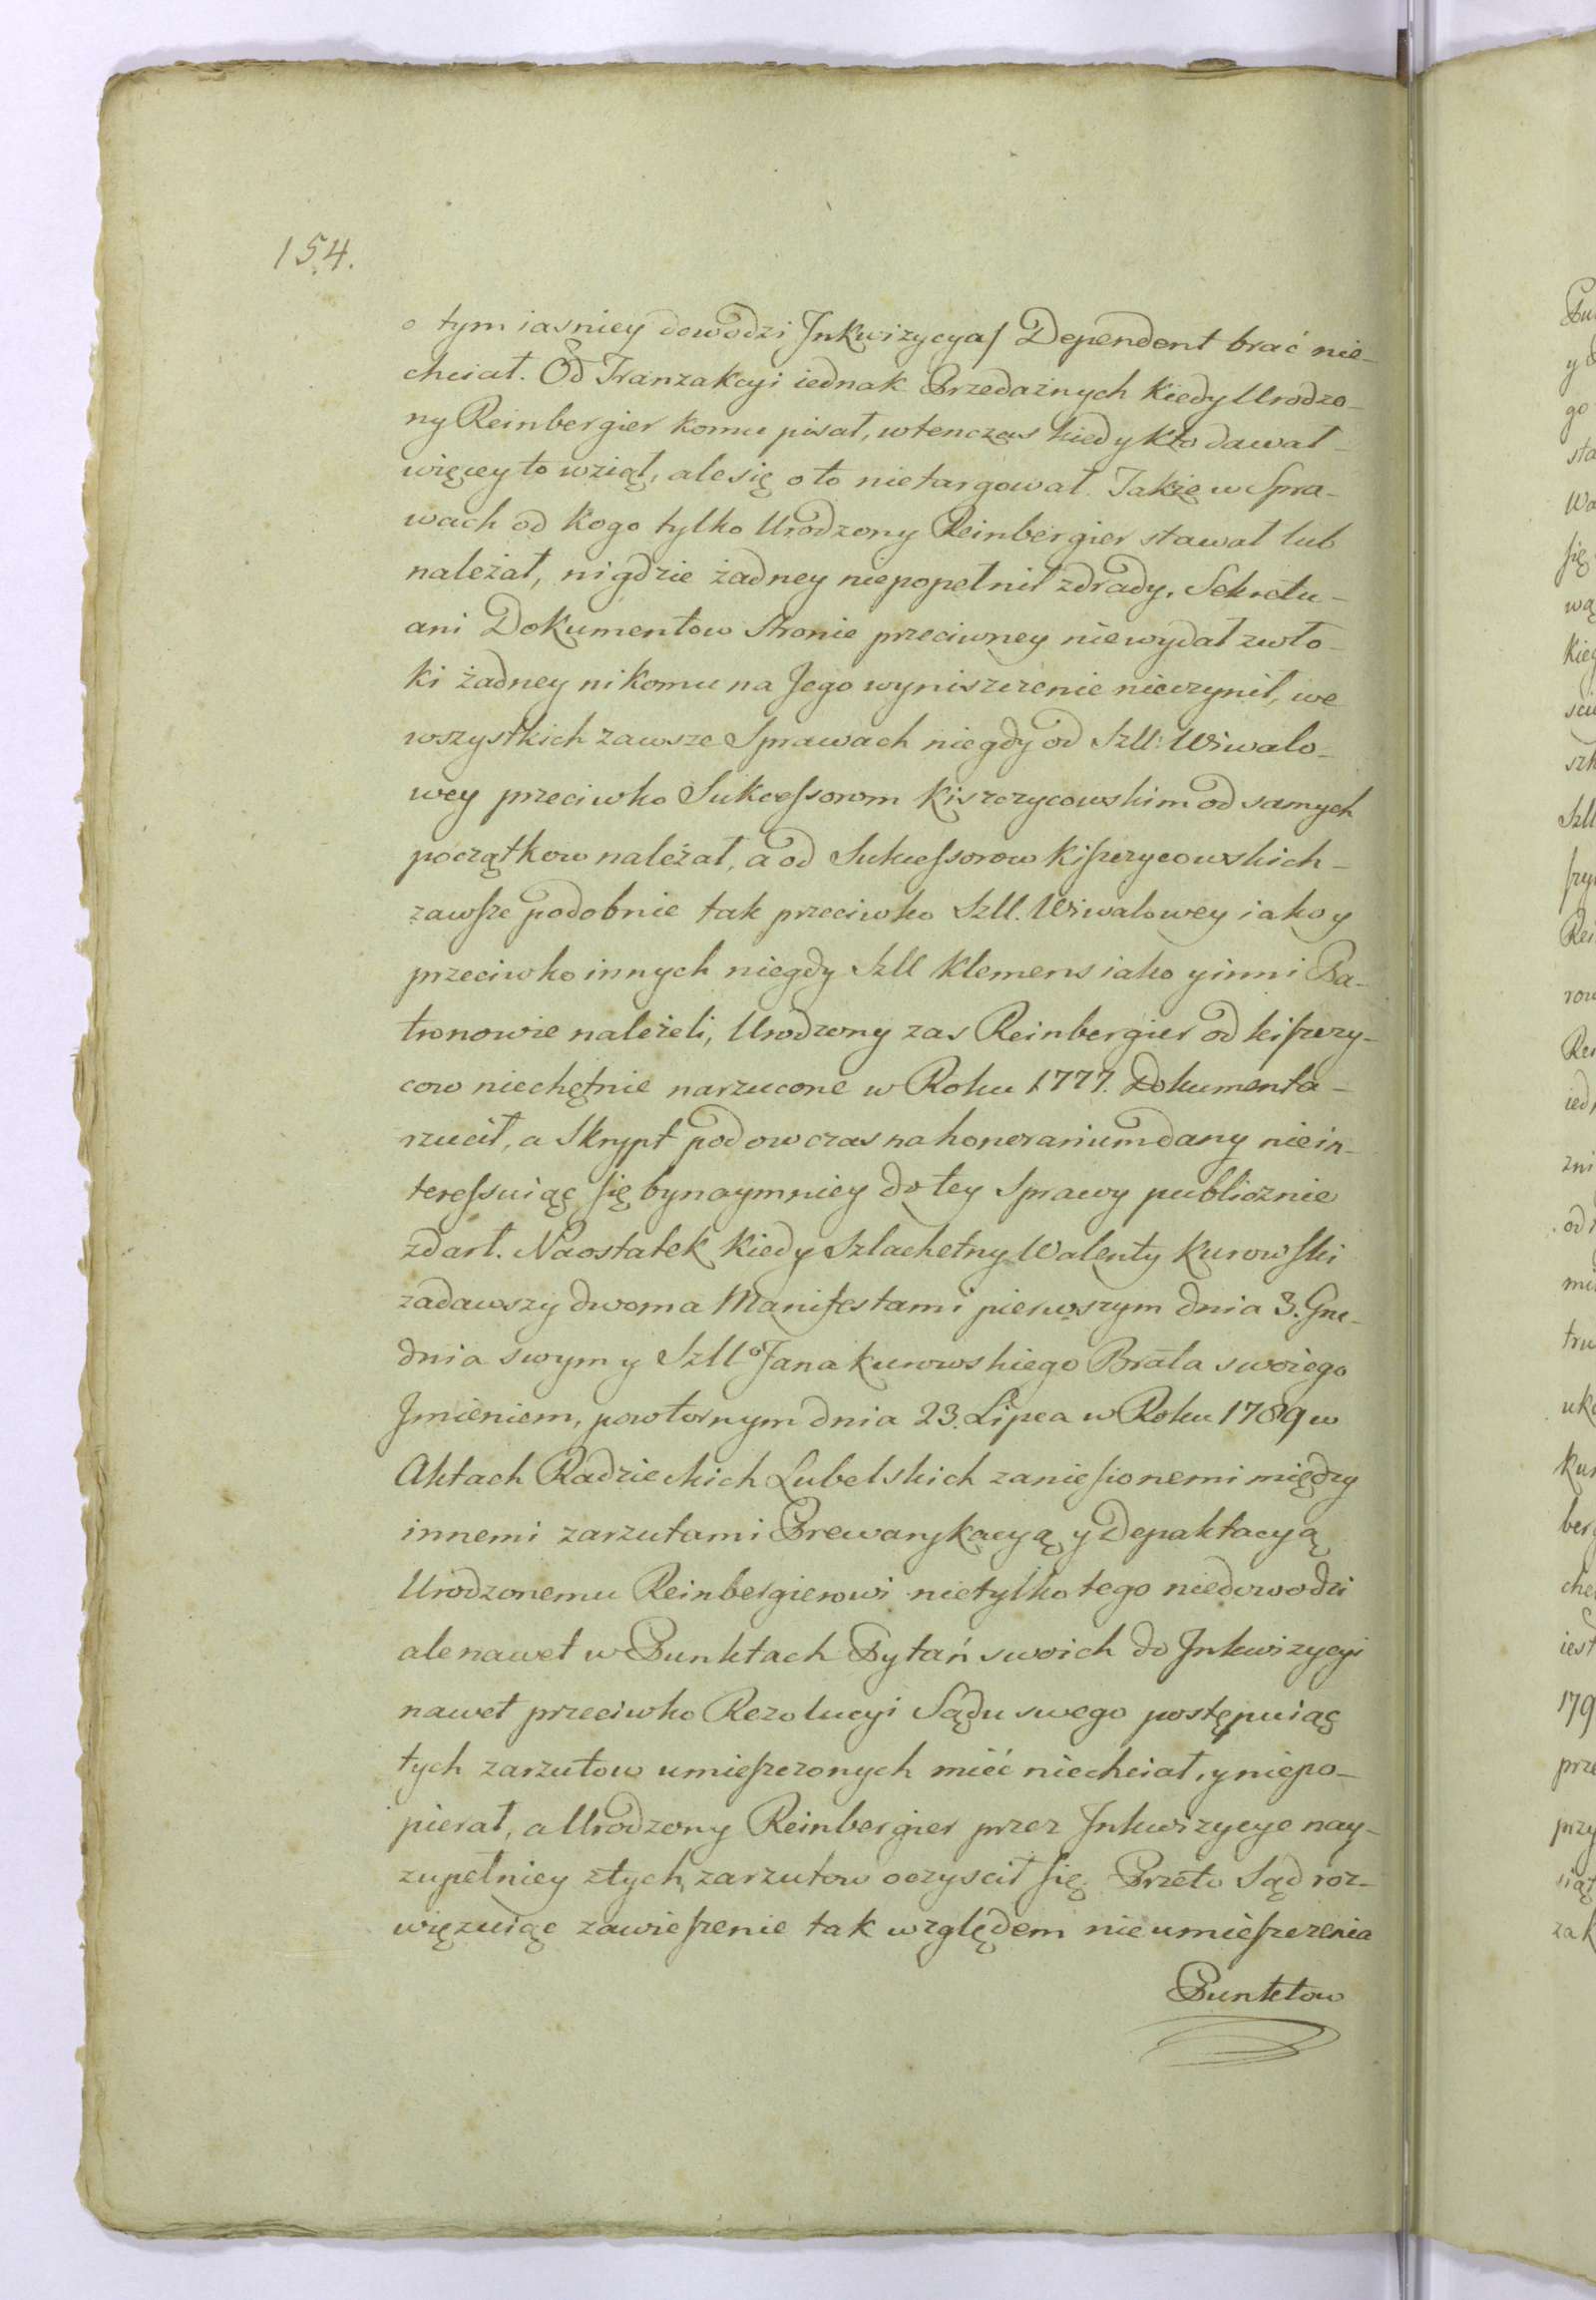 154.
o tym iasniey dowodzi Jnkwizycya/ Dependent brać nie-
chciał. Od Tranzakcyi iednak Przedażnych kiedy Urodzo-
ny Reinbergier komu pisał, wtenczas kiedy kto dawał-
więcey to wziął, ale się o to nietargował. Także w Spra-
wach od kogo tylko Urodzony Reinbergier stawał lub
należał, nigdzie żadney niepopełnił zdrady, Sekretu-
ani Dokumentow stronie przeciwney niewydał zwło-
ki żadney nikomu na Jego wyniszczenie nieczynił, we
wszystkich zawsze Sprawach niegdy od Szll: Wiwalo-
wey przeciwko Sukcessorom Kiszczycowskim od samych
początkow należał, a od Sukcessorow Kiszczycowskich-
zawsze podobnie tak przeciwko Szll. Wiwalowey iako y
przeciwko innych niegdy Szll Klemens iako y inni Pa-
tronowie należeli, Urodzony zas Reinbergier od kiszczy-
cow niechętnie narzucone w Roku 1777. Dokumenta-
rzucił, a Skrypt podowczas na honorarium dany niein-
teressuiąc się bynaymniey do tey Sprawy publicznie
zdarł. Naostatek kiedy Szlachetny Walenty Kurowski
zadawszy dwoma Manifestami pierwszym dnia 3. Gru-
dnia swym y Szllo Jana Kurowskiego Brata swoiego
Jmieniem, powtornym dnia 23. Lipca w Roku 1789 w
Aktach Radzieckich Lubelskich zaniesionemi między
innemi zarzutami Prewarykacyą y Depaktacyą
Urodzonemu Reinbergierowi nietylko tego niedowodzi
ale nawet w Punktach Pytań swoich do Jnkwizycyi
nawet przeciwko Rezolucyi Sądu swego postępuiąc
tych zarzutow umieszczonych mieć niechciał, y niepo-
pierał, a Urodzony Reinbergier przez Jnkwizycye nay-
zupełniey z tych zarzutow oczyscił się. Przeto Sąd roz-
więzuiąc zawieszenie tak względem nieumieszczenia
Punktow